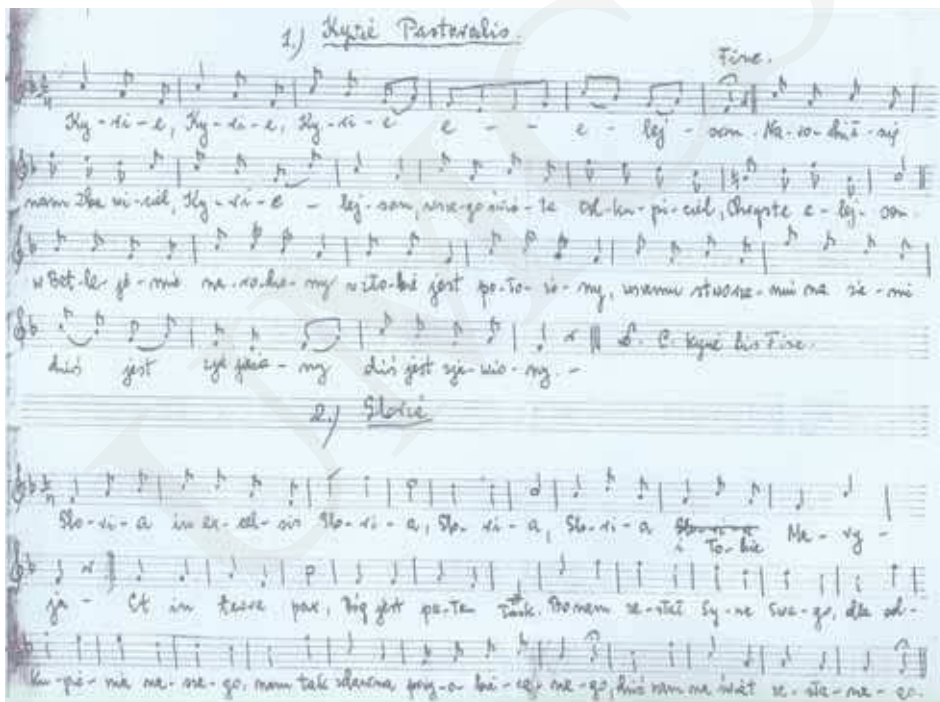 1.) Kyrié Pastoralis.
Fine.
Ky - ri - e, Ky - ri - e, Ky - ri - e e - - e - lej - son. Na - ro - dził - się
nam Zba wi - ciel, Ky - ri - e - lej - son, wsze - go świa - ta Od - ku - pi - ciel, Chryste e - lej - son.
w Bet - le - je - mie na - ro - dzo - ny w żło - bie jest po - ło - żo - ny, wszemu stworze - niu na zie - mi
dziś jest - ny dziś jest zja - wio - ny. -
D. C. Kyrié bis Fine.
2.) Glorié
Glo - ri - a in ex - cel - sis Glo - ri - a, Glo - ri - a, Glo - ri - a Ma - ry -
i To - bie
ja - Et in terra pax, Bóg jest pa - tem Bo nam ze - słał Sy - na Swe - go, dla od -
ku - pie - nia na - sze - go, nam tak - ne - go, dziś nam na świat ze - sła - ne - go.
UMCS